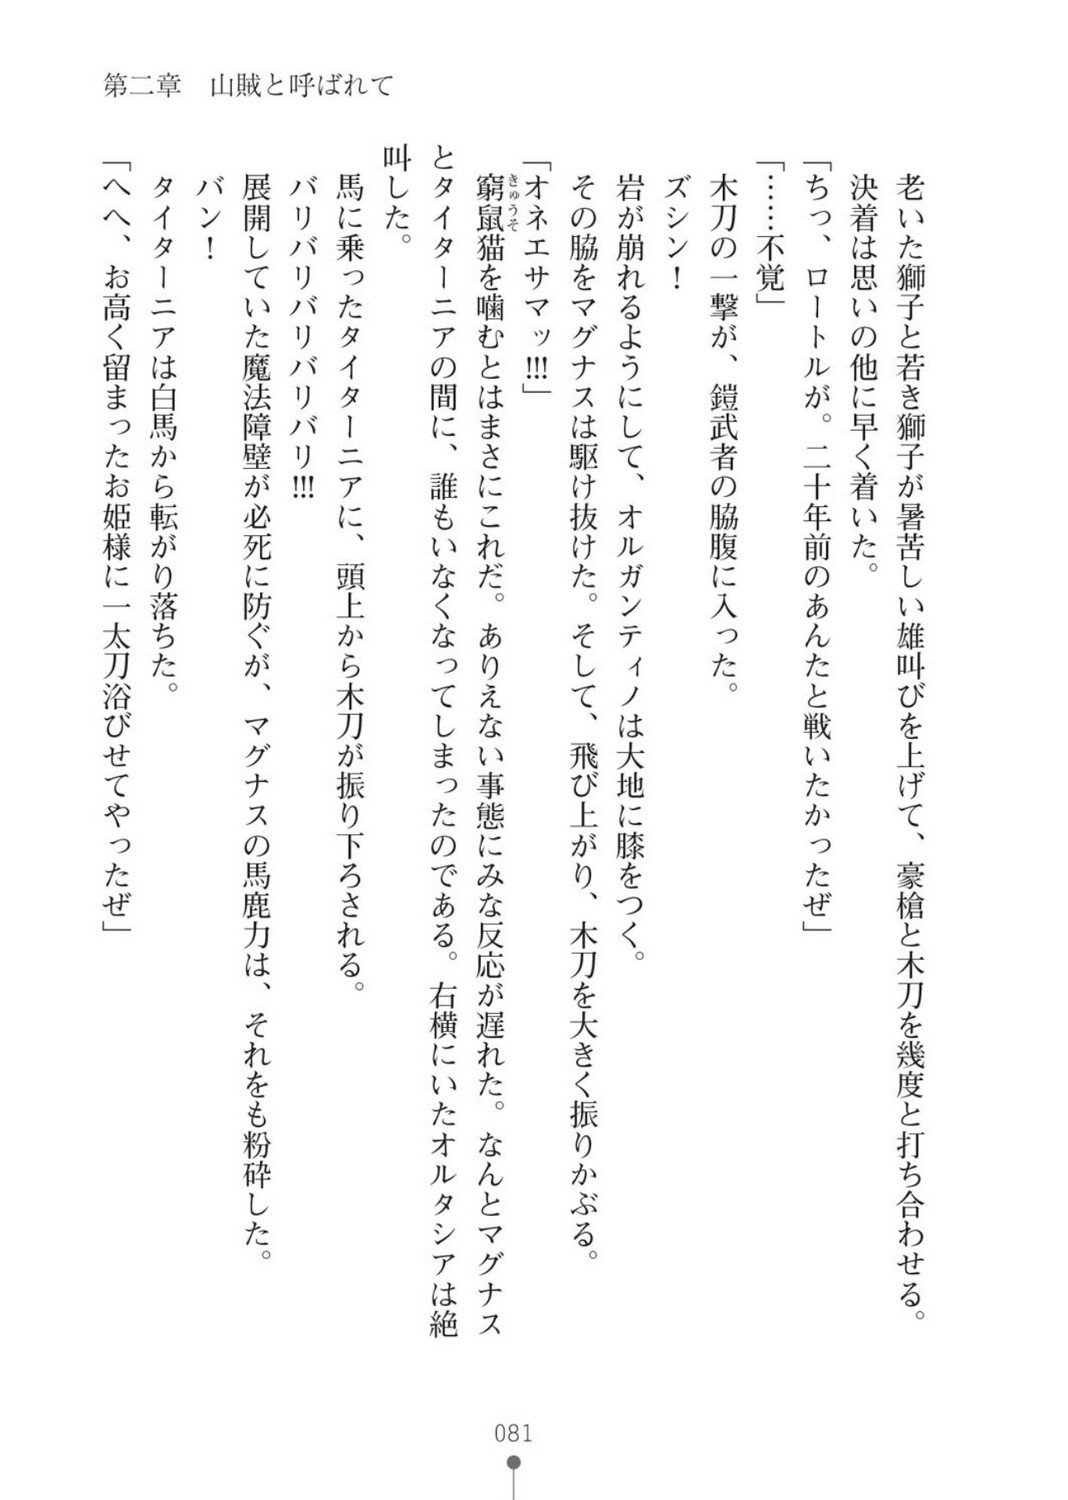 第二章　山賊と呼ばれて
　老いた獅子と若き獅子が暑苦しい雄叫びを上げて、豪槍と木刀を幾度と打ち合わせる。
　決着は思いの他に早く着いた。
「ちっ、ロートルが。二十年前のあんたと戦いたかったぜ」
「……不覚」
　木刀の一撃が、鎧武者の脇腹に入った。
　ズシン！
　岩が崩れるようにして、オルガンティノは大地に膝をつく。
　その脇をマグナスは駆け抜けた。そして、飛び上がり、木刀を大きく振りかぶる。
「オネエサマッ!!!」
きゅうそ
　窮鼠猫を噛むとはまさにこれだ。ありえない事態にみな反応が遅れた。なんとマグナス
とタイターニアの間に、誰もいなくなってしまったのである。右横にいたオルタシアは絶
叫した。
　馬に乗ったタイターニアに、頭上から木刀が振り下ろされる。
　バリバリバリバリバリ!!!
　展開していた魔法障壁が必死に防ぐが、マグナスの馬鹿力は、それをも粉砕した。
　バン！
　タイターニアは白馬から転がり落ちた。
「へへ、お高く留まったお姫様に一太刀浴びせてやったぜ」
081